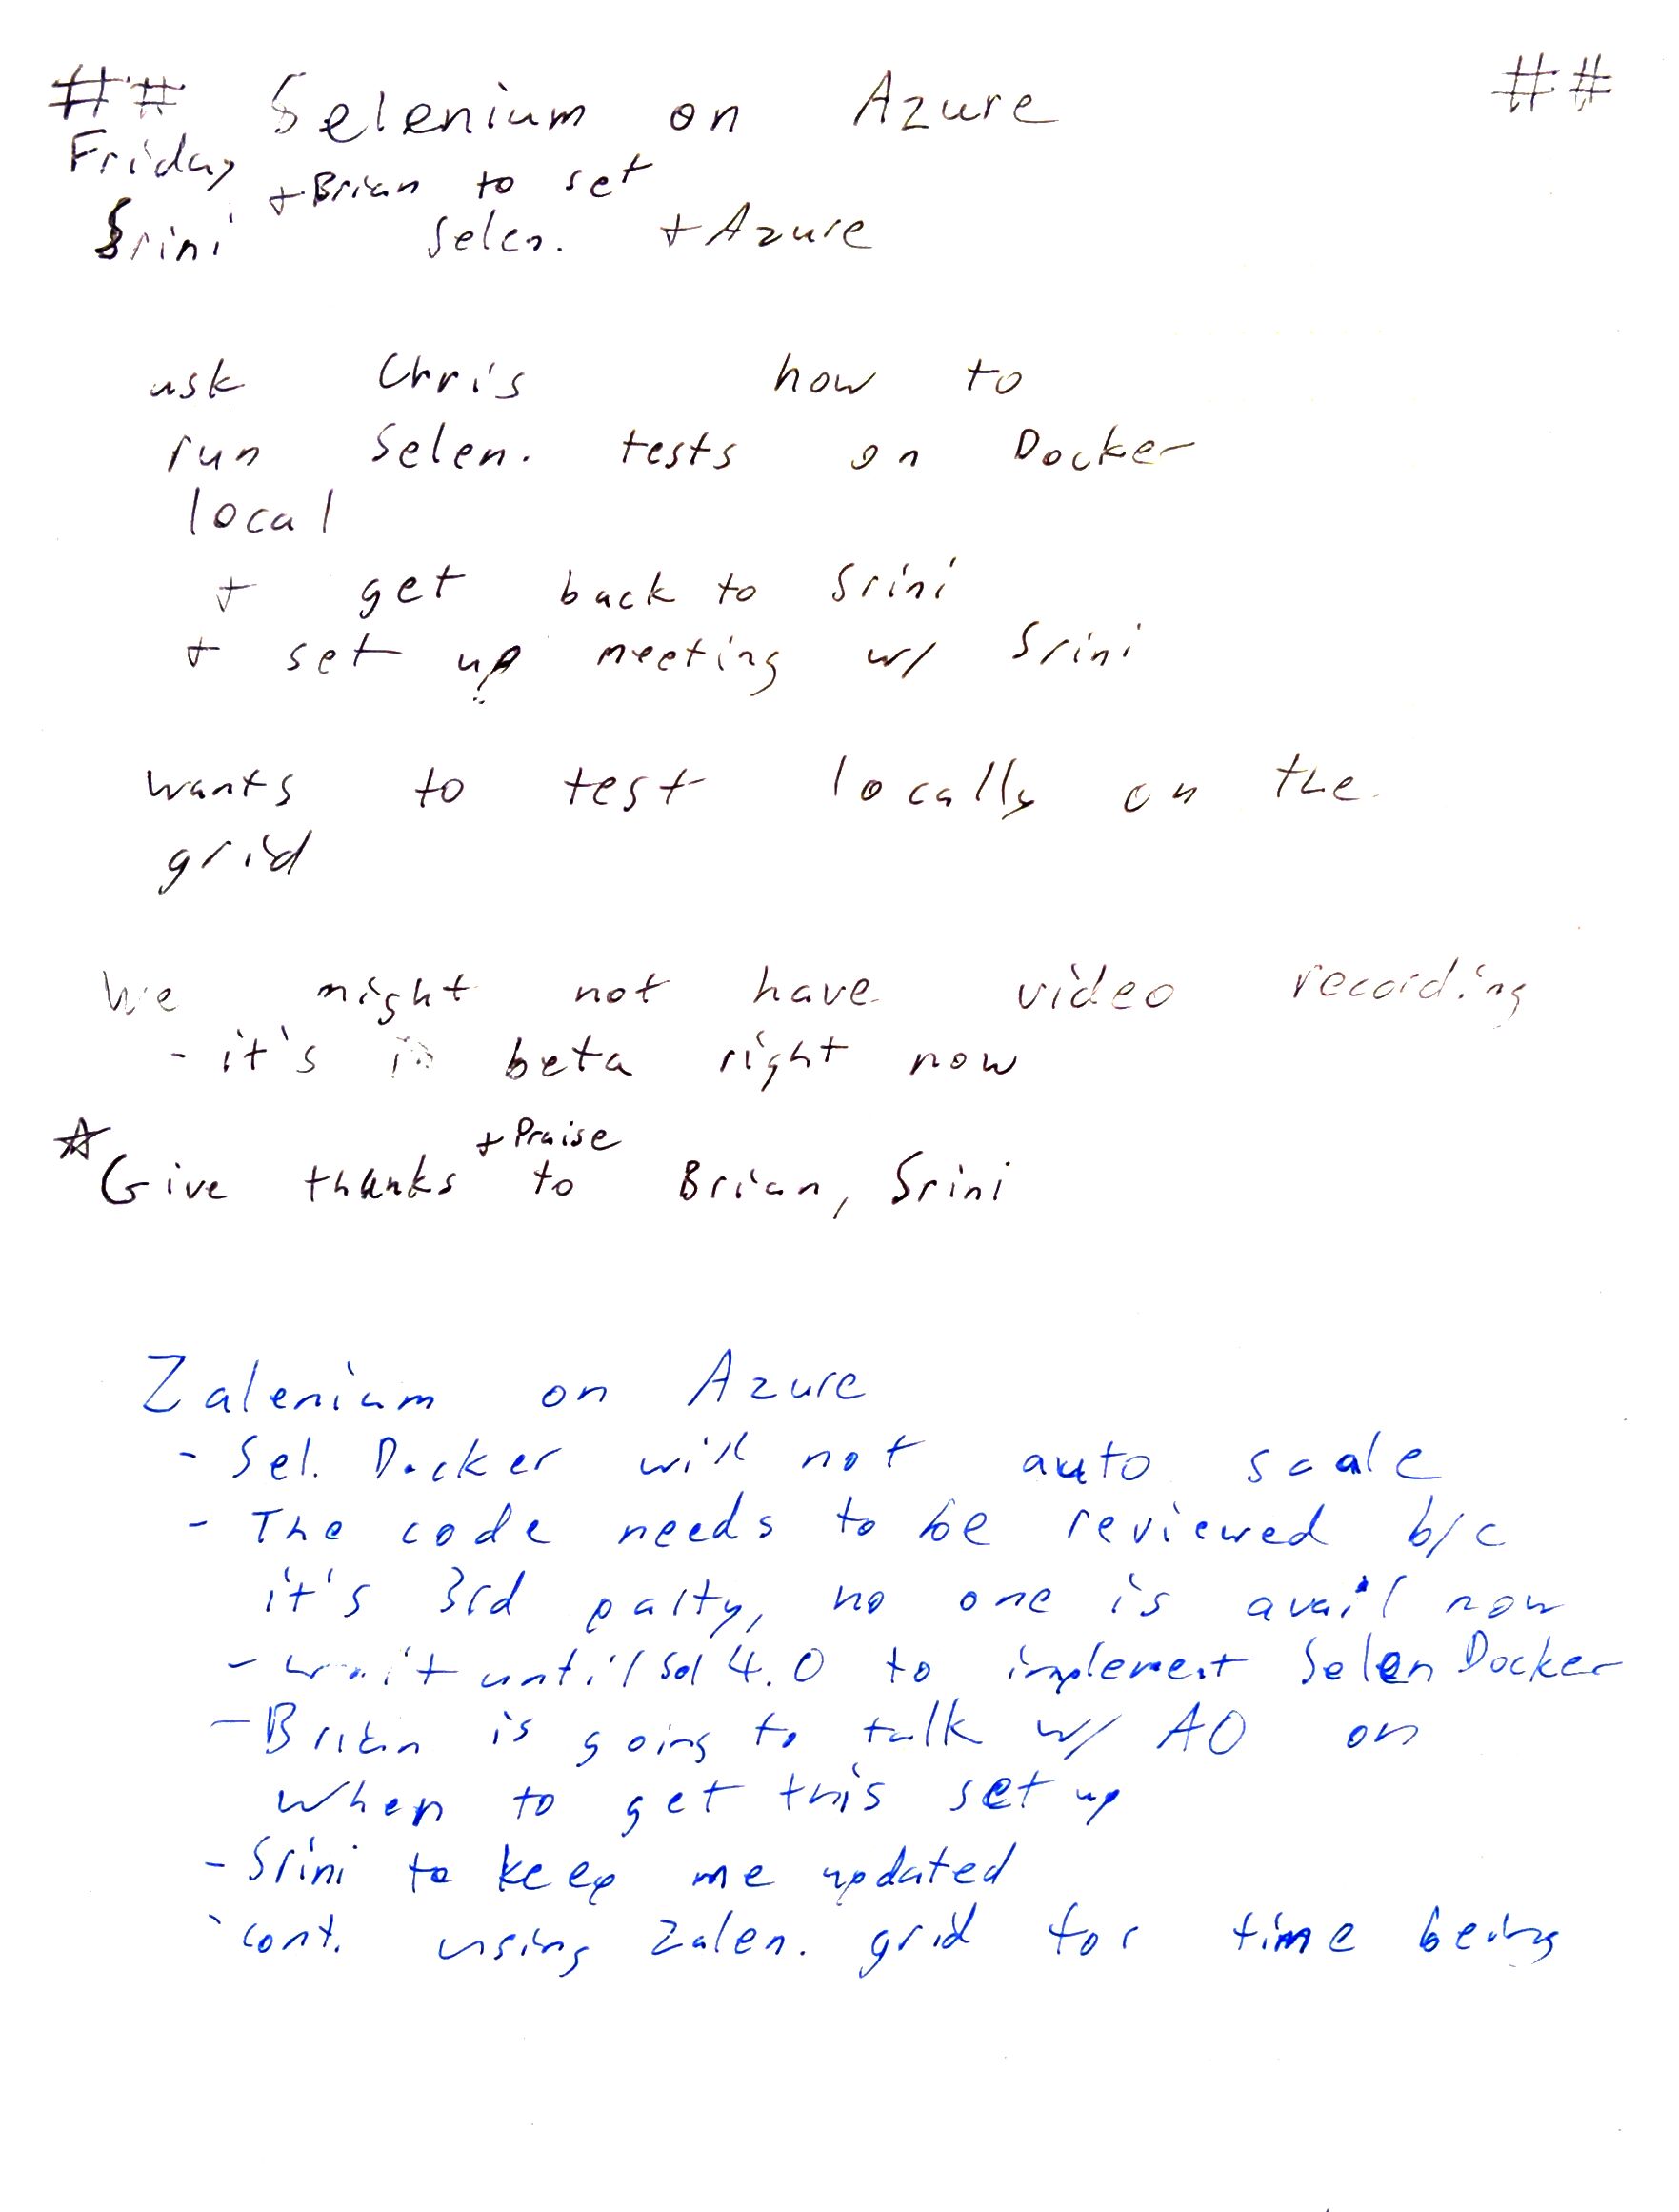 ## Selenium on Azure ##
Friday
+Brian to set
Srini Selen. + Azure
ask Chris how to
run Selen. tests on Docker
local
+ get back to Srini
+ set up meeting w/ Srini
wants to test locally on the
grid
We might not have video recording
- it's in beta right now
+ Praise
☆ Give thanks to Brian, Srini
Zalenium on Azure
- Sel. Docker will not auto scale
- The code needs to be reviewed b/c
it's 3rd party, no one is avail now
- wait until Sel 4.0 to implement Selen Docker
- Brian is going to talk w/ AO on
when to get this set up
- Srini to keep me updated
- cont. using Zalen. grid for time being